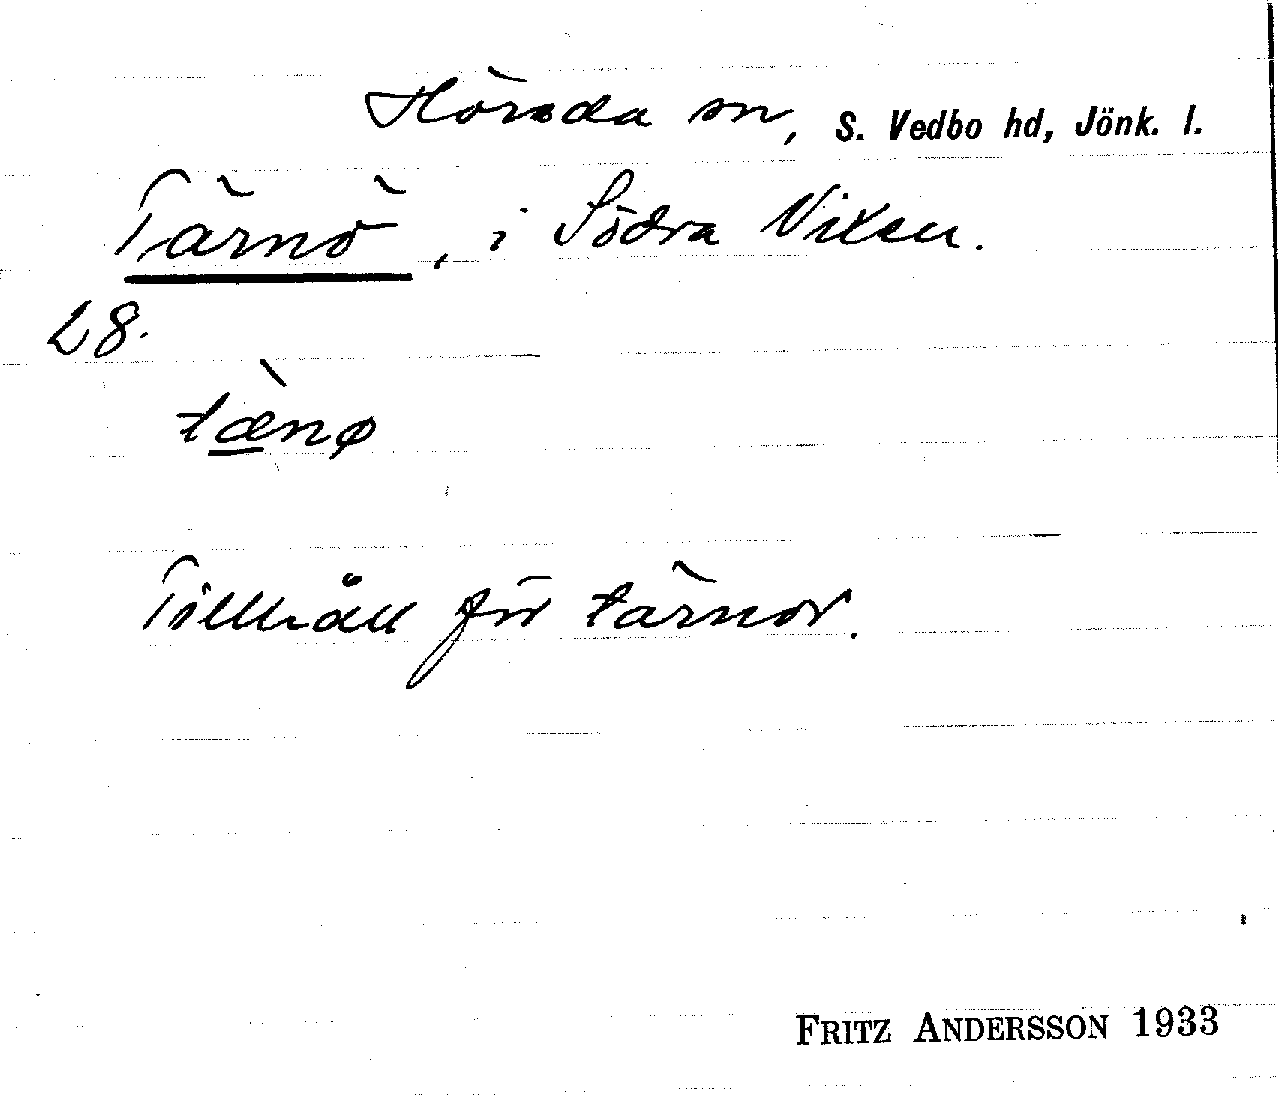 Höreda sn, S. Vedbo hd, Jönk. l.
Tärnö, i Södra Vixen.
L8.
tæ̀nø
Tillhåll för tärnor.
FRITZ ANDERSSON 1933